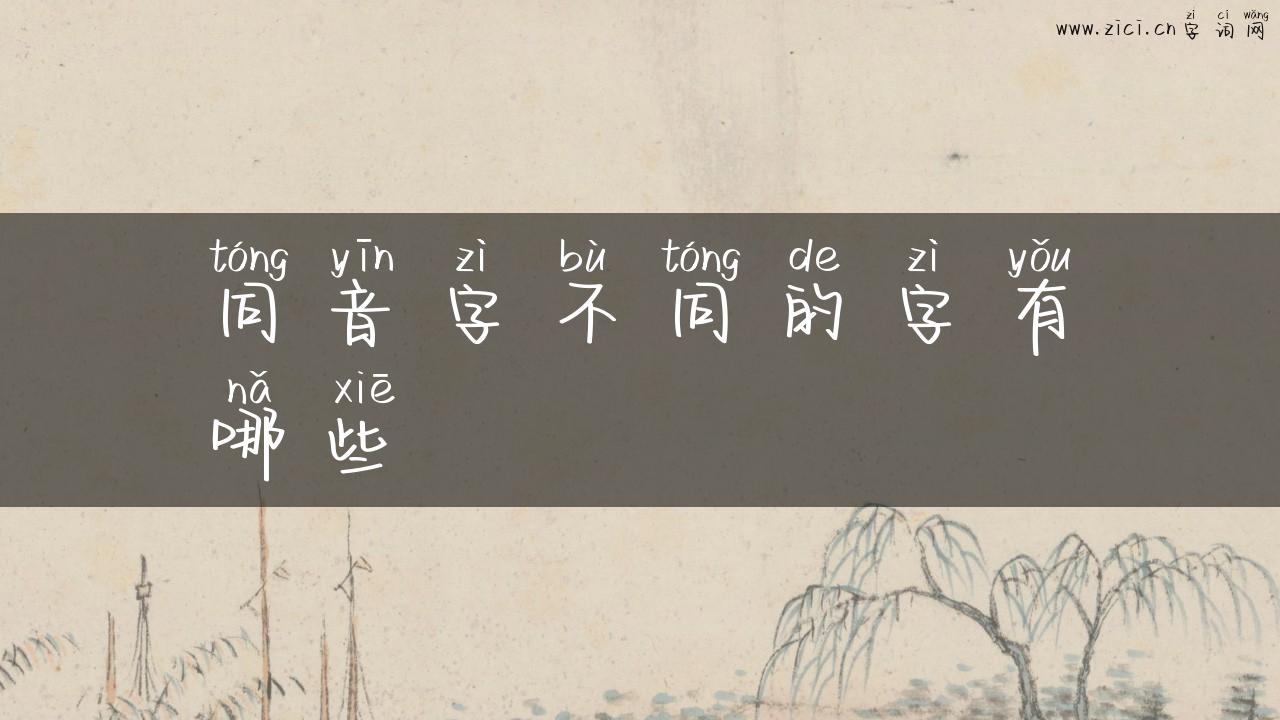 zì cí wǎng
www.zici.cn 字 词 网
tóng yīn zì bù tóng de zì yǒu
同 音 字 不 同 的 字 有
nǎ xiē
哪 些